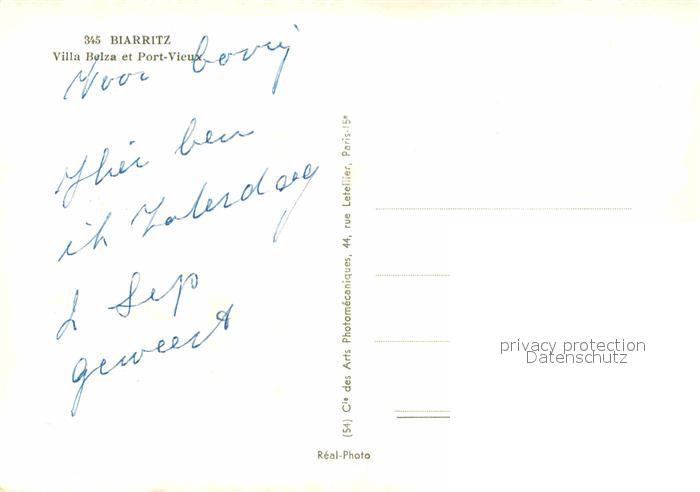 345 BIARRITZ
Villa Belza et Port-Vieux
Voor
Hier ben
ik Zaterdag
2 Sep
geweest
(54) Cie des Arts Photomécaniques, 44, rue Letellier, Paris-15e
privacy protection
Datenschutz
Réal-Photo